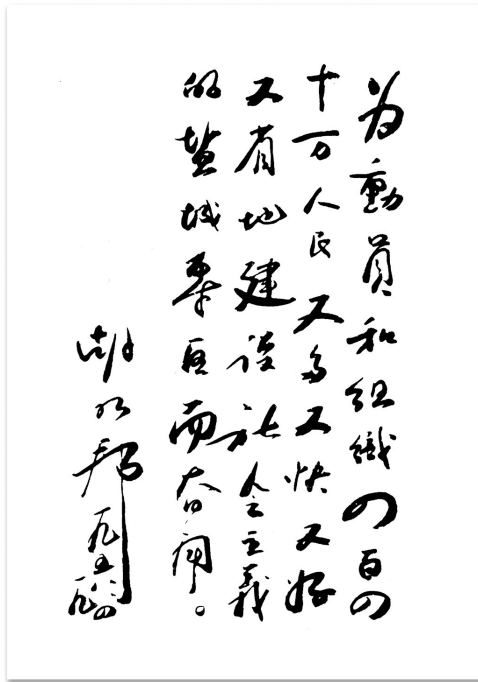 为動員和组織四百四
十万人民又多又快又好
又省地建设社会主義
的盐城專区而奋鬥。
胡耀邦